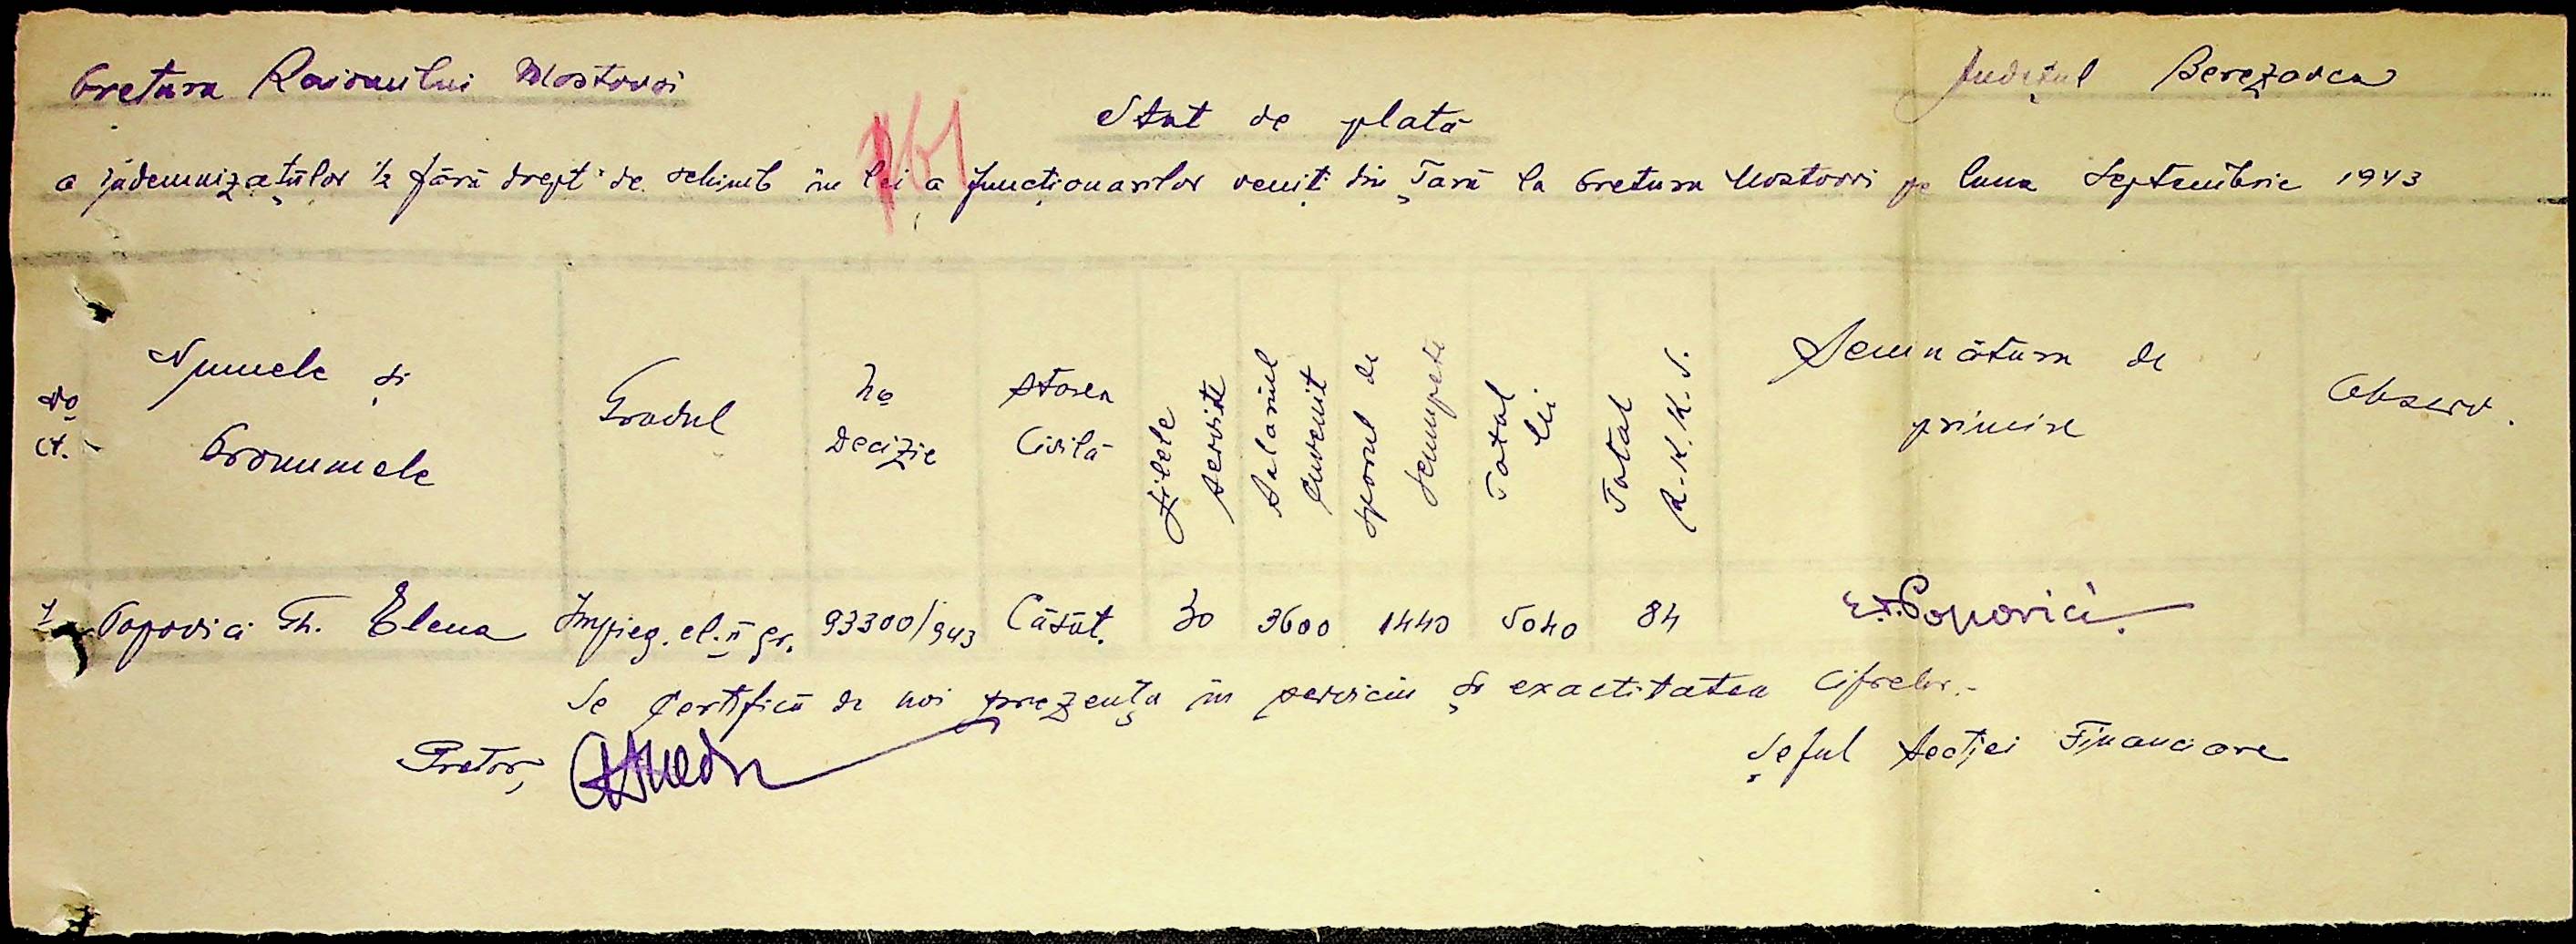 Pretura Raionului Mostovoi
Județul Berezovca
761
Stat de plată
a îndemnizațiilor ½ fără drept de schimb în lei a funcționarilor veniți din Țară la Pretura Mostovoi pe luna Septembrie 1943
No ct.
Numele și Pronumele
Gradul
No Decizie
Starea Civilă
Zilele servite
Salariul Cuvenit
Sporul de scumpete
Total lei
Total R.K.K.S.
Semnătura de primire
Observ.
1 Popovici Th. Elena Impieg. cl. II gr. 93300/943 Căsăt. 30 3600 1440 5040 84 E. Popovici
Se Certifică de noi prezența în serviciu și exactitatea Cifrelor.-
Pretor,
Șeful Secției Financiare